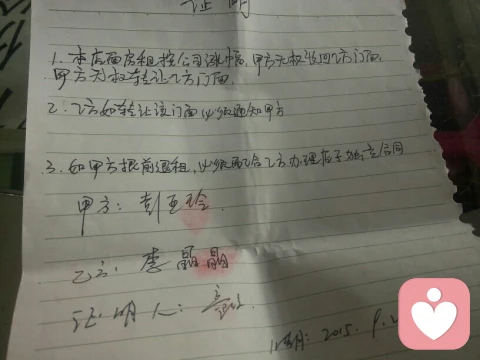 证明
1. 本店面房租按公司涨幅, 甲方无权收回乙方门面,
甲方无权转让乙方门面
2. 乙方如转让该门面必须通知甲方
3. 如甲方提前退租, 必须配合乙方办理
合同
甲方: 彭亚玲
乙方: 李晶晶
证明人:
2015. 9.2